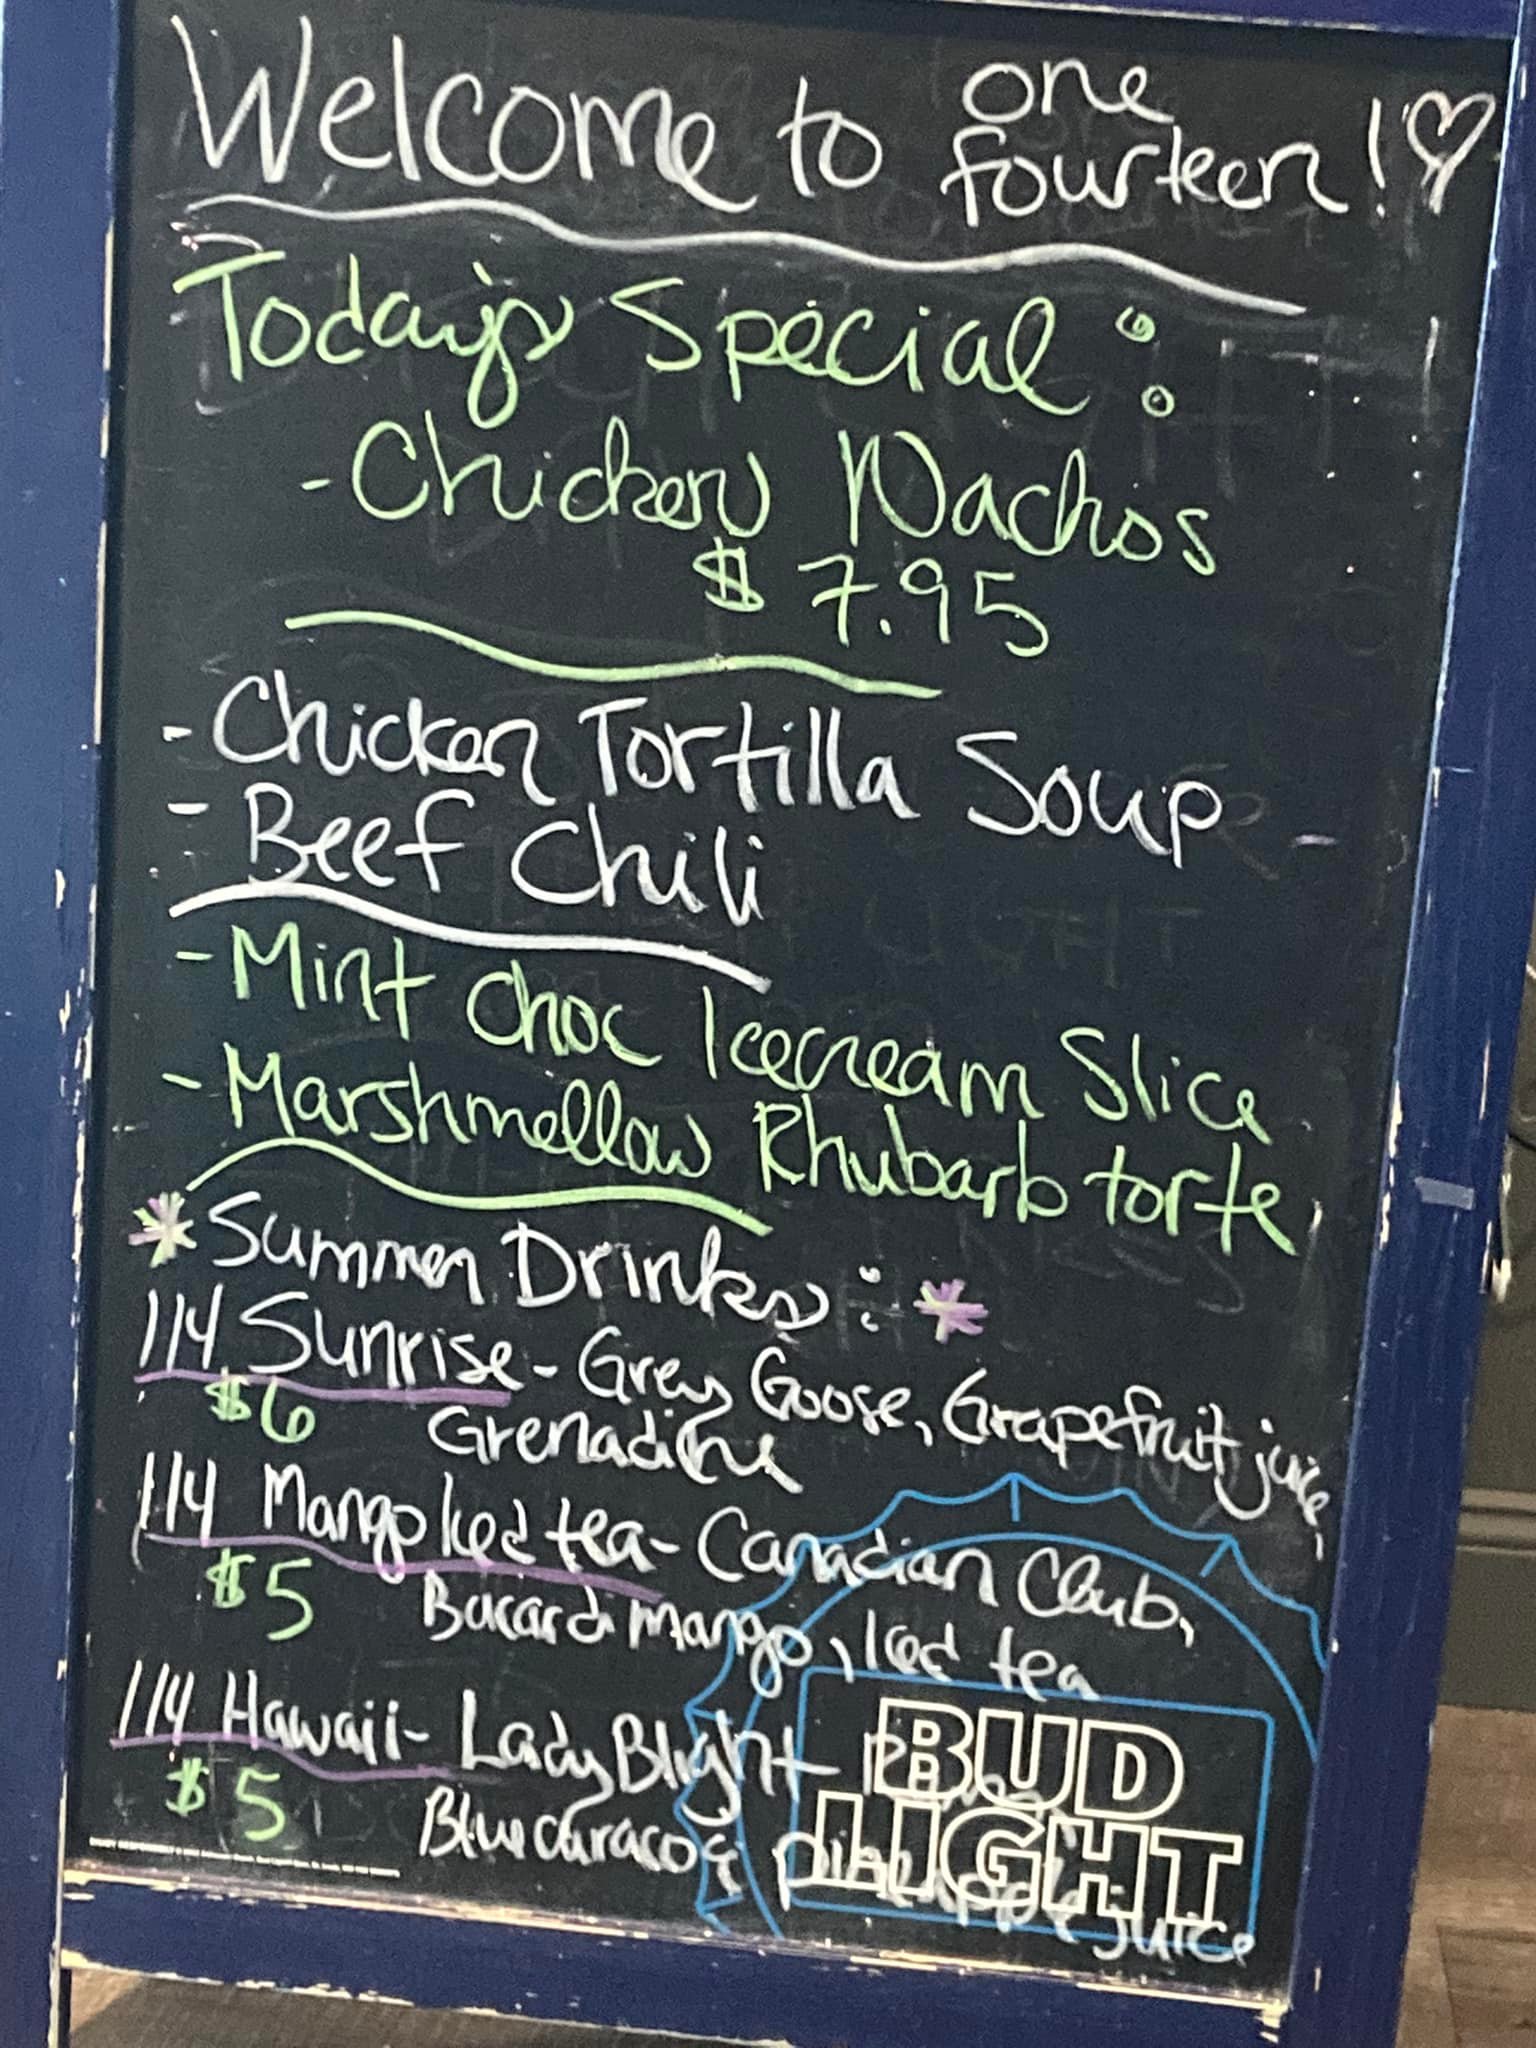 Welcome to one fourteen!
Today's Special:
- Chicken Nachos
$7.95
- Chicken Tortilla Soup
- Beef Chili
- Mint Choc Icecream Slice
- Marshmellow Rhubarb torte
* Summer Drinks: *
114 Sunrise - Grey Goose, Grapefruit juice,
$6 Grenadine
114 Mango Iced tea - Canadian Club,
$5 Bacardi mango, Iced tea
114 Hawaii - Lady Blight
$5 Blue curacoa pineapple juice
BUD
LIGHT